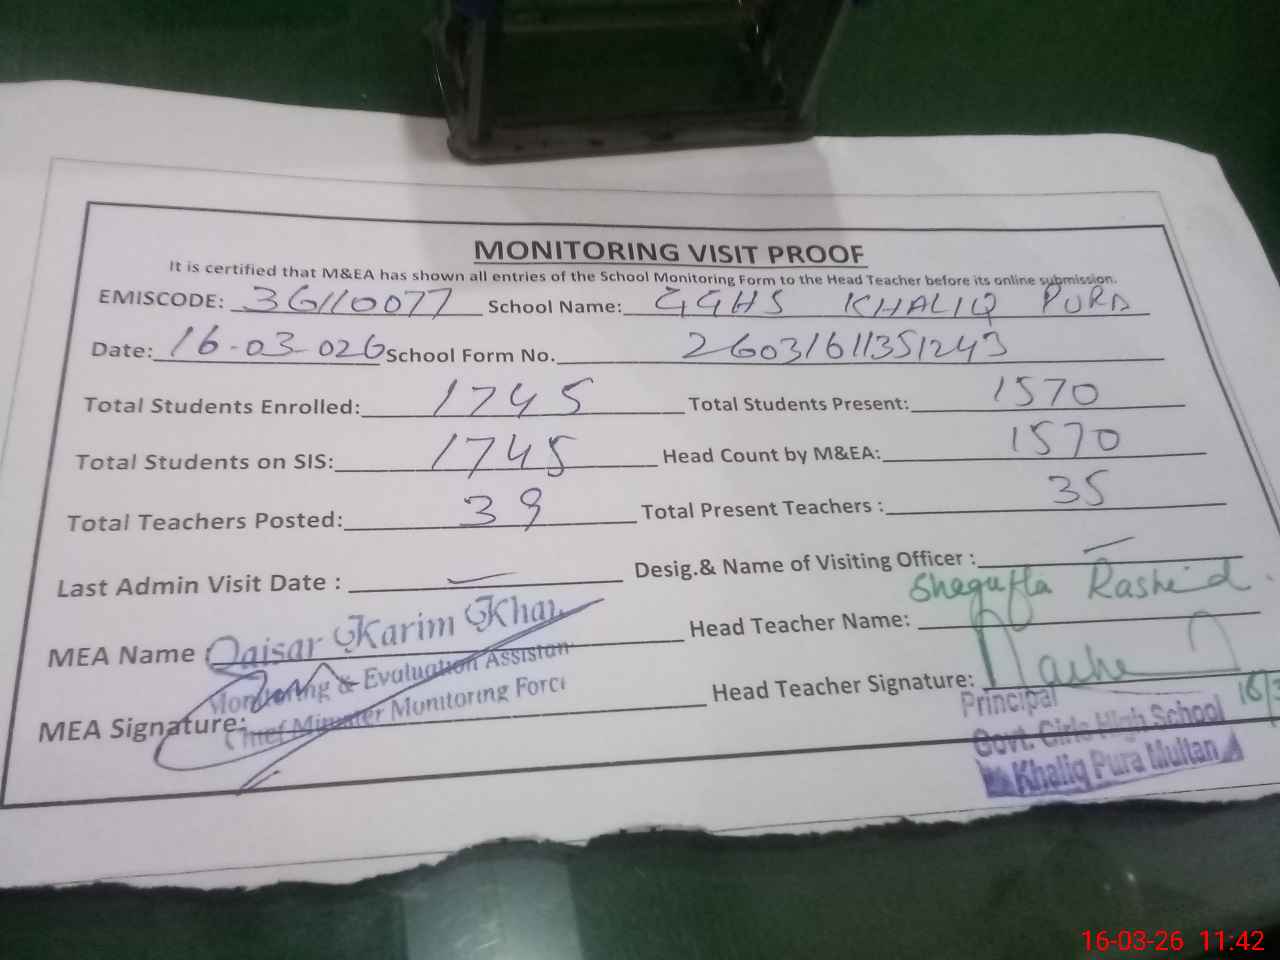 MONITORING VISIT PROOF
It is certified that M&EA has shown all entries of the School Monitoring Form to the Head Teacher before its online submission.
EMISCODE: 36110077 School Name: GGHS KHALIQ PURA
Date: 16-03-026 School Form No. 26031611351243
Total Students Enrolled: 1745 Total Students Present: 1570
Total Students on SIS: 1745 Head Count by M&EA: 1570
Total Teachers Posted: 39 Total Present Teachers : 35
Last Admin Visit Date : — Desig.& Name of Visiting Officer : —
MEA Name Qaisar Karim Khan Head Teacher Name: Shagufta Rasheed
Monitoring & Evaluation Assistan
MEA Signature: Head Teacher Signature:
Chief Minister Monitoring Force
Principal
Govt. Girls High School
Khaliq Pura Multan
16-03-26 11:42